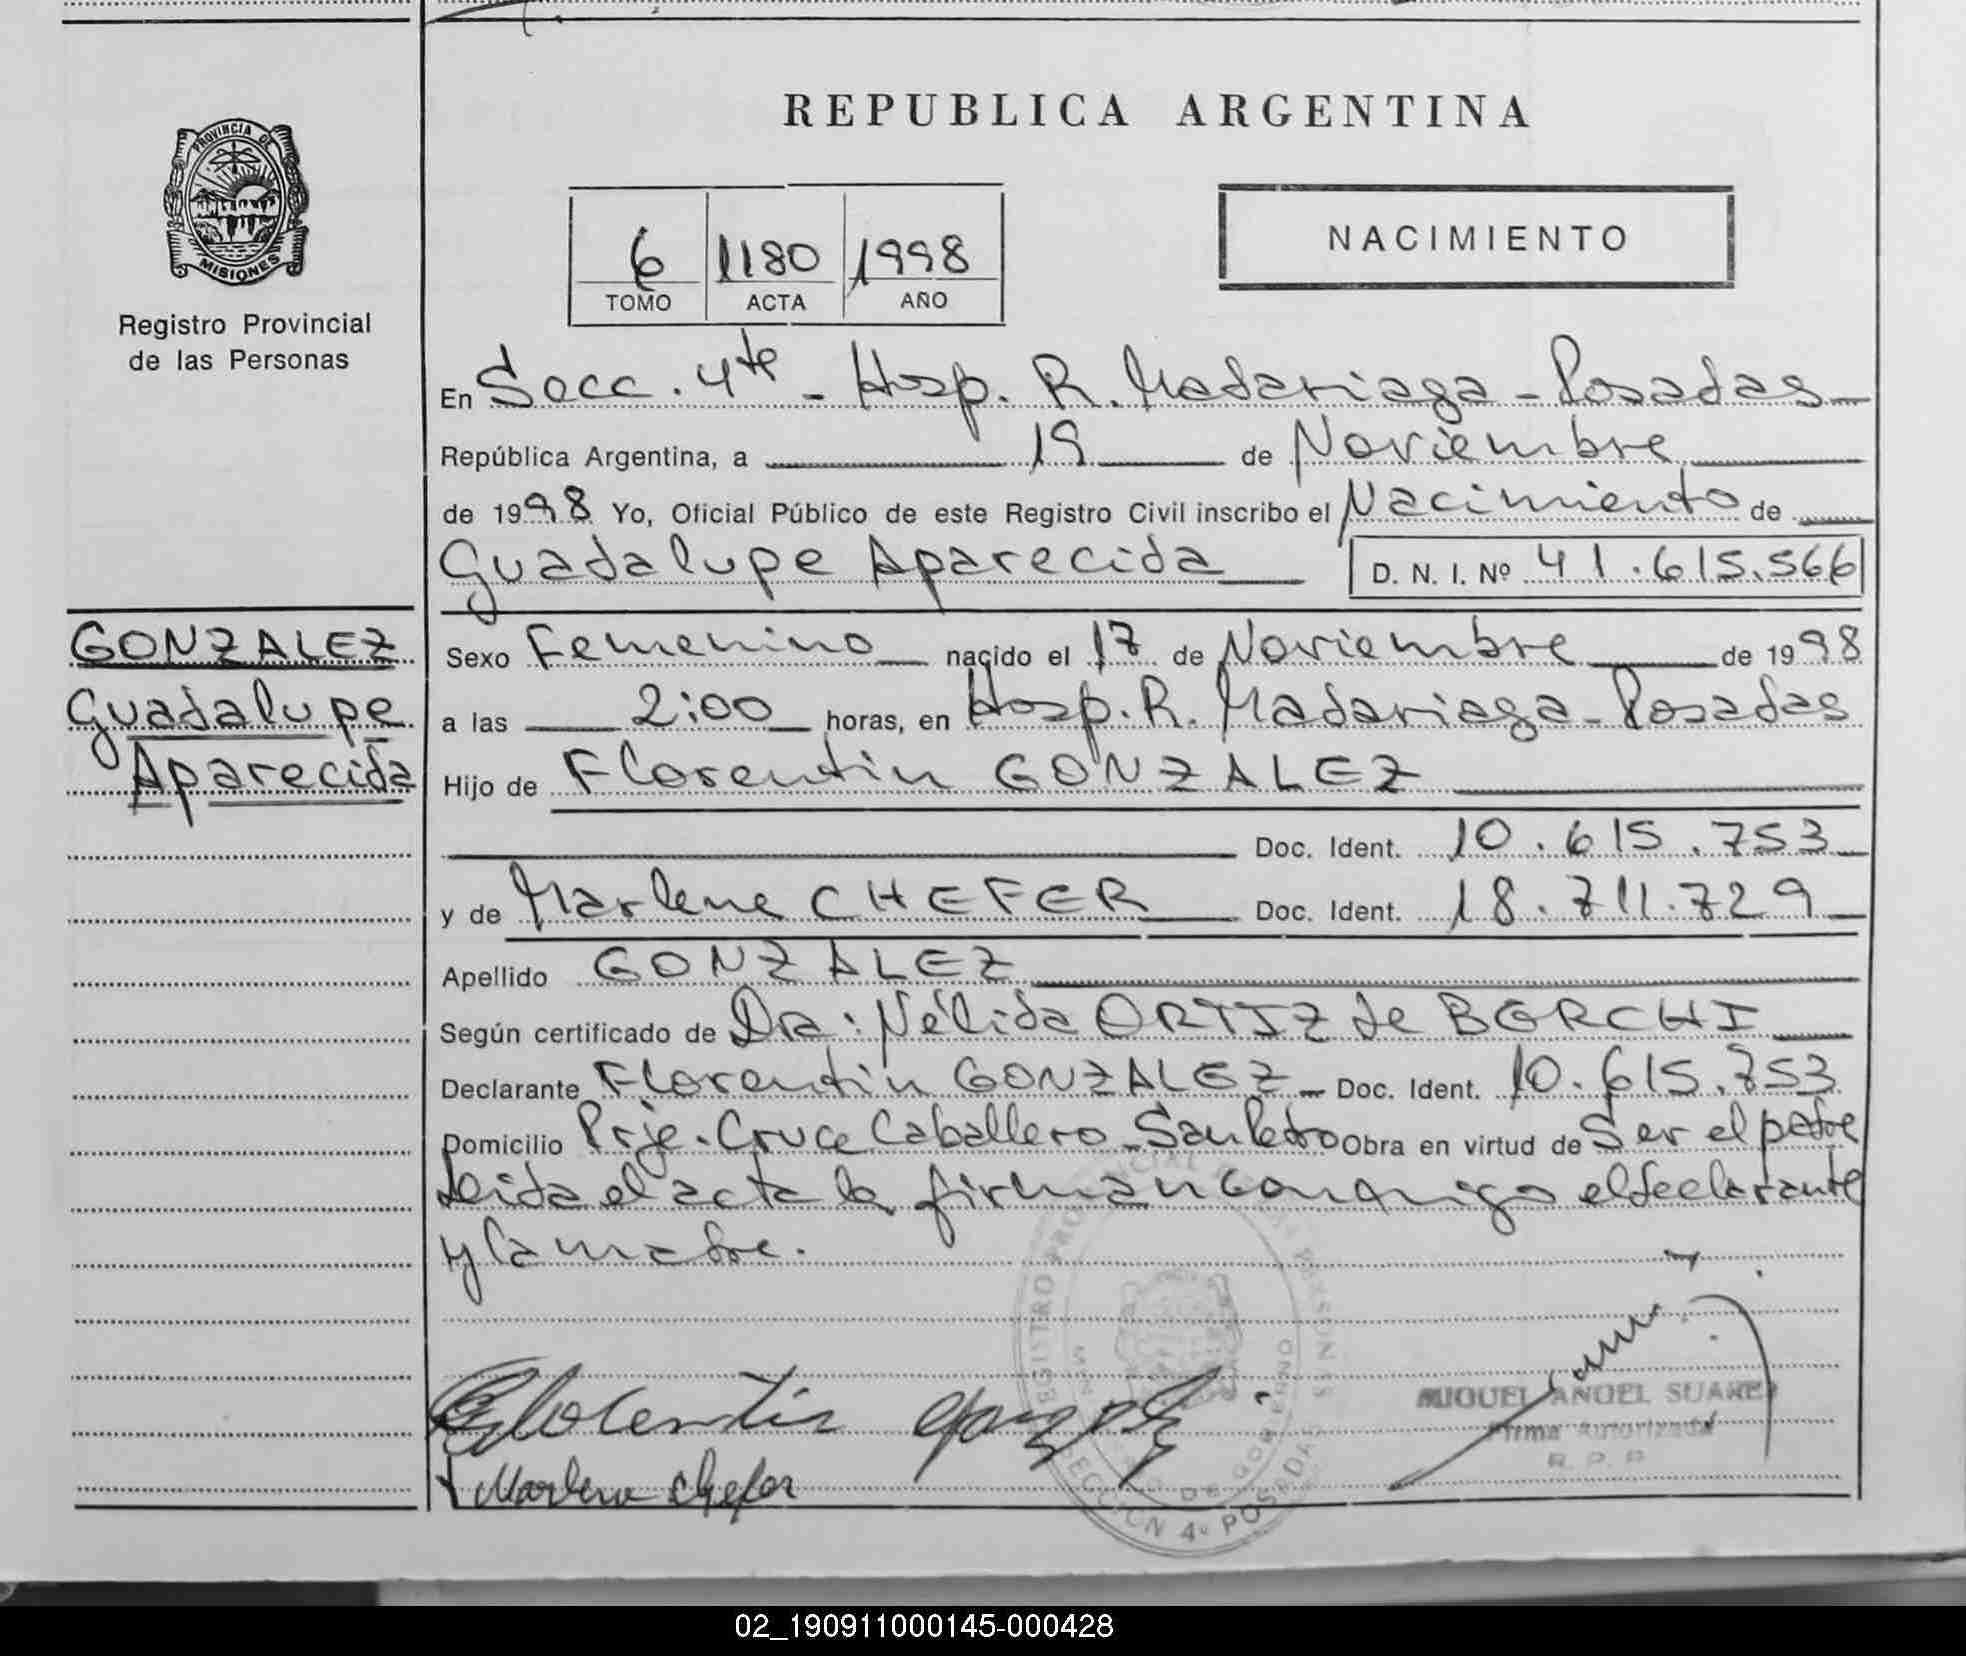 PROVINCIA DE
MISIONES
Registro Provincial
de las Personas
REPUBLICA ARGENTINA
6 1180 1998
TOMO ACTA AÑO
NACIMIENTO
En Secc. 4ta - Hosp. R. Madariaga - Posadas
República Argentina, a 19 de Noviembre
de 1998 Yo, Oficial Público de este Registro Civil inscribo el Nacimiento de
Guadalupe Aparecida D. N. I. Nº 41.615.566
GONZALEZ
Guadalupe
Aparecida
Sexo Femenino nacido el 17 de Noviembre de 1998
a las 2:00 horas, en Hosp. R. Madariaga - Posadas
Hijo de Florentin GONZALEZ
Doc. Ident. 10.615.753
y de Marlene CHEFER Doc. Ident. 18.711.729
Apellido GONZALEZ
Según certificado de Dra: Nélida ORTIZ de BERCHI
Declarante Florentin GONZALEZ - Doc. Ident. 10.615.753
Domicilio Prje. Cruce Caballero - San Pedro Obra en virtud de Ser el padre
Leida el acta la firman conmigo el declarante
y la madre.
Florentin Gonzalez
Marlene Chefer
MIGUEL ANGEL SUAREZ
Firma Autorizada
R. P. P.
REGISTRO PROVINCIAL DE LAS PERSONAS
SECCION 4º POSADAS
02_190911000145-000428